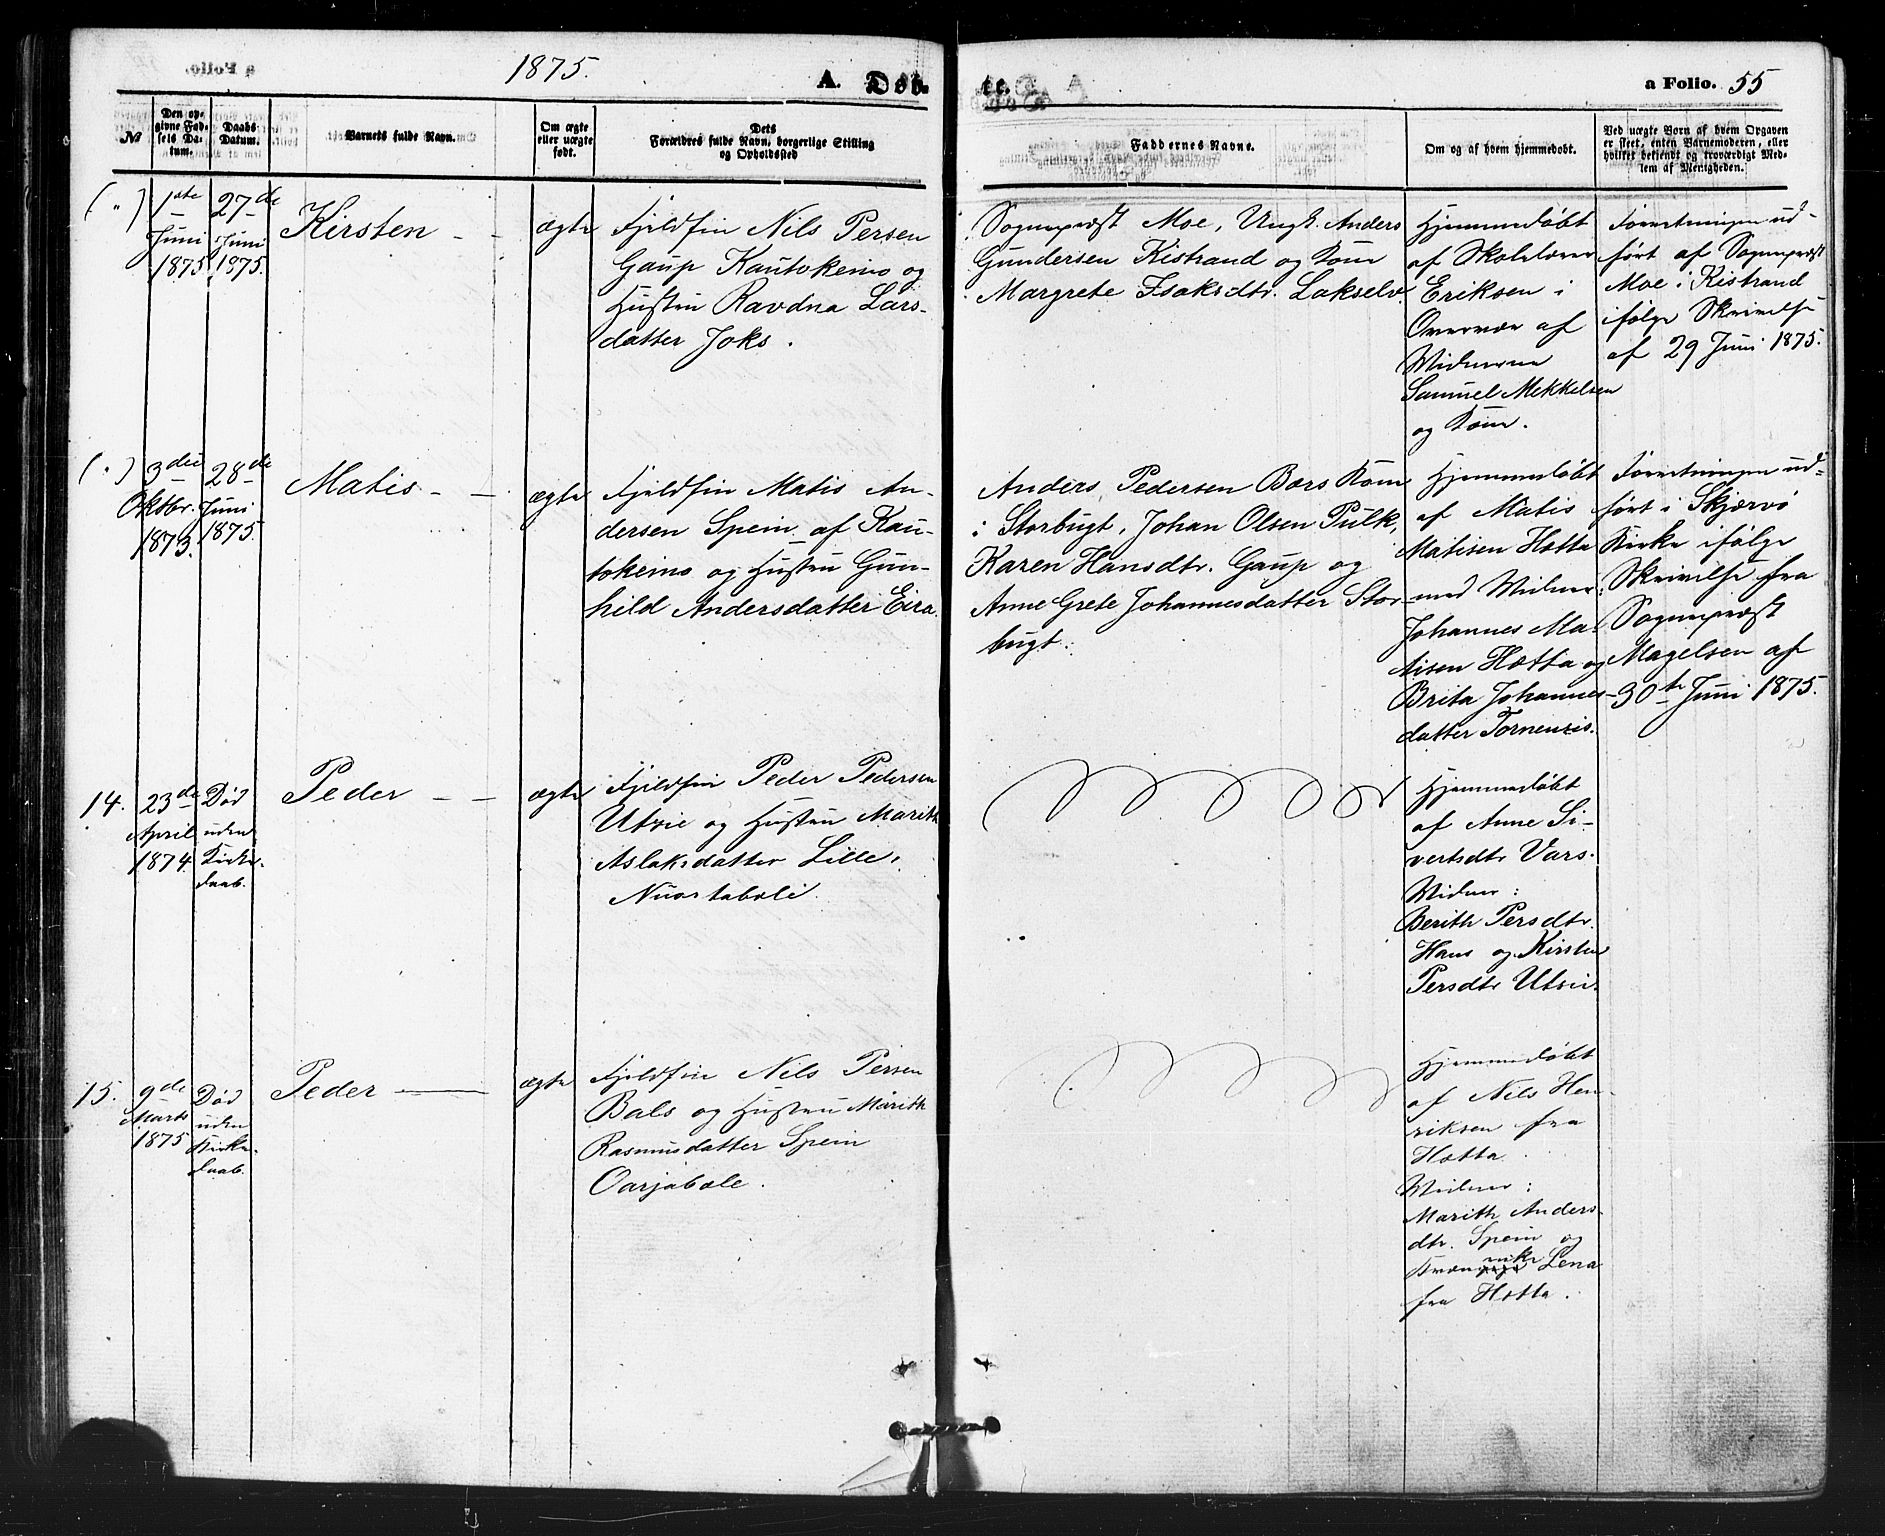 1875.
A. Døb-
te.
a Folio. 55
№
Den op-
givne Fød-
sels Da-
tum.
Daabs
Datum.
Barnets fulde Navn.
Om ægte
eller uægte
født.
Dets
Forældres fulde Navn, borgerlige Stilling
og Opholdssted
Faddernes Navne.
Om og af hvem hjemmedøbt.
Ved uægte Børn af hvem Opgaven
er skeet, enten Barnemoderen, eller
hvilket bekjendt og troværdigt Med-
lem af Menigheden.
(")
1ste
Juni
1875
27de
Juni
1875.
Kirsten - -
ægte
Fjeldfin Nils Persen
Gaup Kautokeino og
Hustru Ravdna Lars-
datter Joks.
Sognepræst Moe, Ungk. Anders
Gundersen Kistrand og Kone
Margrete Isaksdtr. Lakselv.
Hjemmedøbt
af Skolelærer
Eriksen i
Overvær af
Widnerne
Samuel Mekkelsen
og Kone.
Forretningen ud-
ført af Sognepræst
Moe i Kistrand
ifølge Skrivelse
af 29 Juni 1875.
(")
3die
Oktbr.
1873.
28de
Juni
1875.
Matis - -
ægte
Fjeldfin Matis An-
dersen Spein af Kau-
tokeino og Hustru Gun-
hild Andersdatter Eira.
Anders Pedersen Bars Kone
i Storbugt, Johan Olsen Pulk,
Karen Hansdtr. Gaup og
Anne Grete Johannesdatter Stor-
bugt.
Hjemmedøbt
af Matis
Matisen Hætta
med Widner:
Johannes Ma-
tisen Hætta og
Brita Johannes-
datter Tornensis.
Forretningen ud-
ført i Skjervø
Kirke ifølge
Skrivelse fra
Sognepræst
Magelsen af
30te Juni 1875.
14.
23de
April
1874.
Død
uden
Kirke-
daab.
Peder - -
ægte
Fjeldfin Peder Pedersen
Utsie og Hustru Marith
Aslaksdatter Lille,
Nuortabele.
Hjemmedøbt
af Anne Si-
vertsdtr Vars.
Widner:
Berith Persdtr.
Hans og Kirsten
Persdtr Utsie.
15.
9de
Marts
1875
Død
uden
Kirke-
daab.
Peder —
ægte
Fjeldfin Nils Persen
Bals og Hustru Marith
Rasmusdatter Spein
Oarjabele.
Hjemmedøbt
af Nils Hen-
riksen fra
Hætta.
Widner:
Marith Anders-
dtr. Spein og
Lena
fra Hætta.